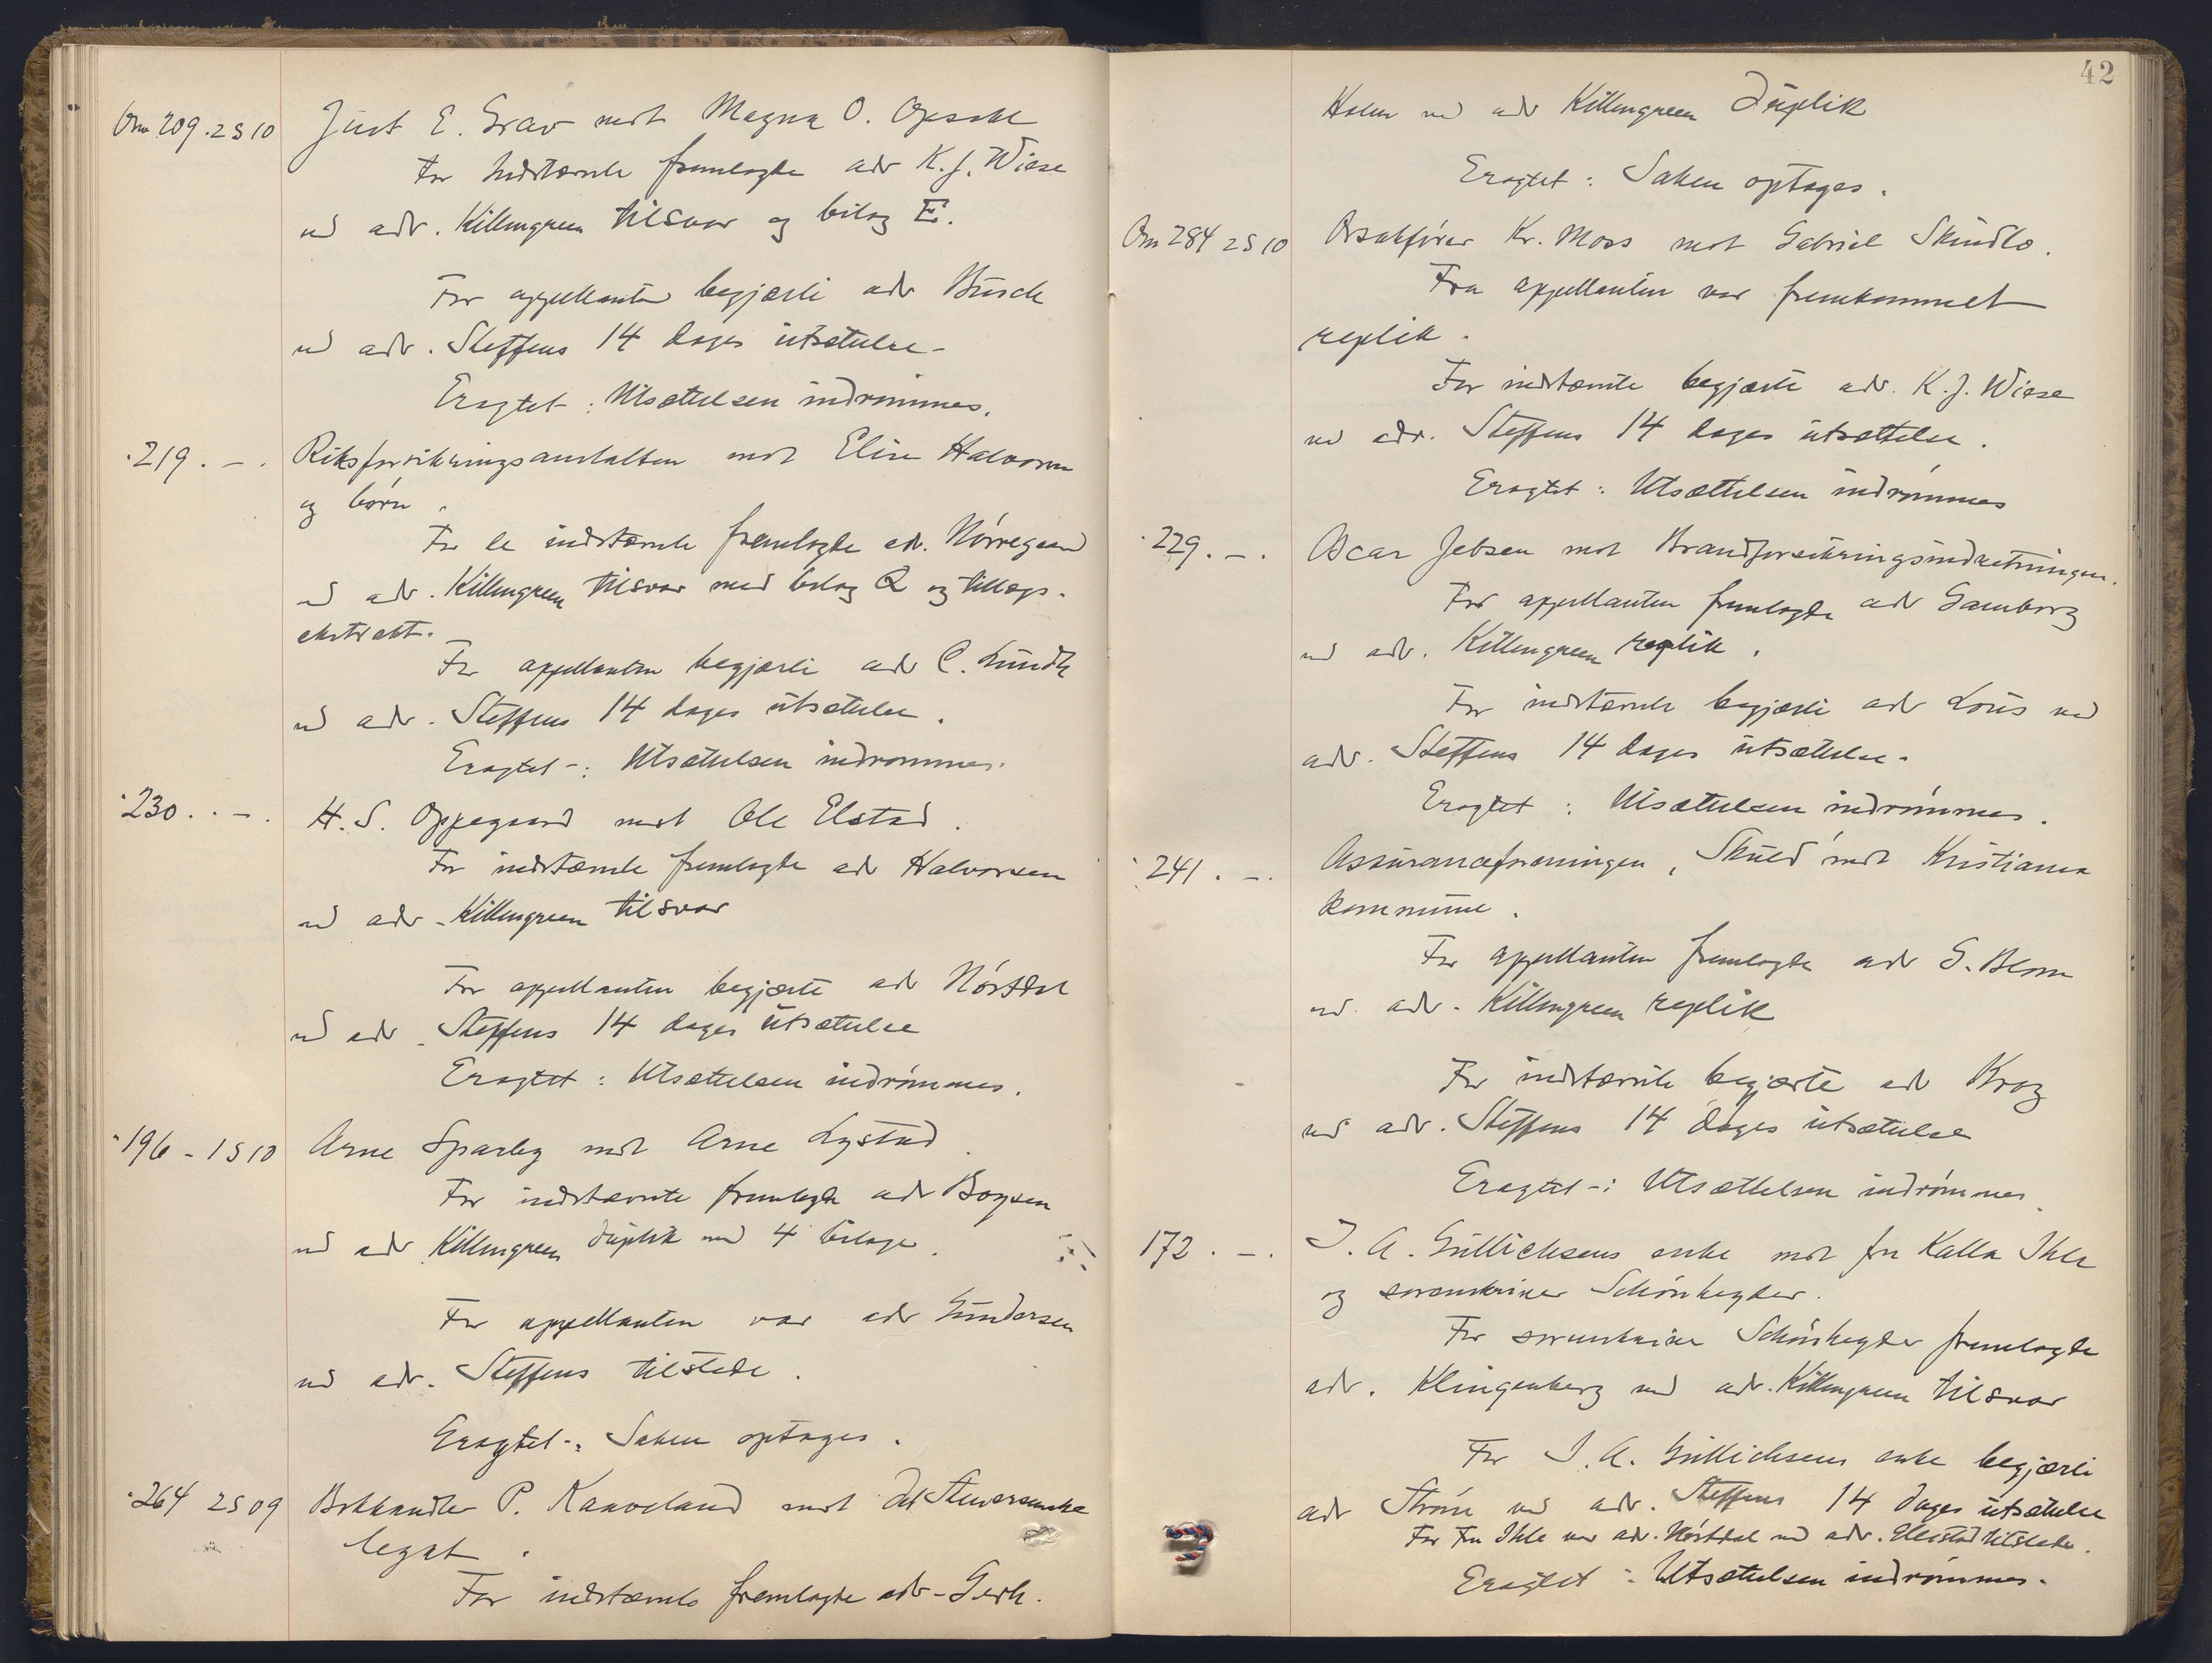 Om 209. 2 S 10 Just E. Grav mot Magna O. Opsahl
For indstævnte fremlagte adv K. J. Wiese
ved adv. Killengreen tilsvar og bilag E.
For appellanten begjærte adv Busch
ved adv. Steffens 14 dages utsættelse.
Eragtet: Utsættelsen indrømmes.
" 219. — . Riksforsikringsanstalten mot Elise Halvorsen
og børn.
For de indstævnte fremlagte adv. Nørregaard
ved adv. Killengreen tilsvar med bilag Q og tillægs-
ekstrakt.
For appellanten begjærte adv C. Lundh
ved adv. Steffens 14 dages utsættelse.
Eragtet: Utsættelsen indrømmes.
" 230. . — . H. S. Oppegaard mot Ole Elstad.
For indstævnte fremlagte adv Halvorsen
ved adv. Killengreen tilsvar
For appellanten begjærte adv Hørstdal
ved adv. Steffens 14 dages utsættelse
Eragtet: Utsættelsen indrømmes.
" 196 - 1 S 10 Arne Sparby mot Arne Lystad.
For indstævnte fremlagte adv Boysen
ved adv Killengreen duplik med 4 bilage.
For appellanten var adv Gundersen
ved adv. Steffens tilstede.
Eragtet: Saken optages.
" 264 2 S 09 Bokhandler P. Kanveland mot det
legat.
For indstævnte fremlagte adv. Gerh.
42
Holm ved adv Killengreen Duplik
Eragtet: Saken optages.
Om 284 2 S 10 Orsakfører Kr. Moss mot Gabriel Skindlo.
Fra appellanten var fremkommet
replik.
For indstævnte begjærte adv. K. J. Wiese
ved adv. Steffens 14 dages utsættelse.
Eragtet: Utsættelsen indrømmes
" 229. — . Oscar Jebsen mot Brandforsikringsindretningen.
For appellanten fremlagte adv Gamborg
ved adv. Killengreen replik.
For indstævnte begjærte adv Lous ved
adv. Steffens 14 dages utsættelse.
Eragtet: Utsættelsen indrømmes.
" 241. — . Assuranceforeningen „Skuld" mot Kristiania
kommune.
For appellanten fremlagte adv G. Blom
ved adv. Killengreen replik
For indstævnte begjærte adv Krog
ved adv. Steffens 14 dages utsættelse
Eragtet: Utsættelsen indrømmes.
172. — . J. A. Gullichsens enke mot fru Kalla Ihle
og sorenskriver Schönheyder.
For sorenskriver Schönheyder fremlagte
adv. Klingenberg ved adv. Killengreen tilsvar
For J. A. Gullichsens enke begjærte
adv Strøm ved adv. Steffens 14 dages utsættelse
For Fru Ihle var adv. Hørstdal ved adv. Heistad tilstede.
Eragtet: Utsættelsen indrømmes.